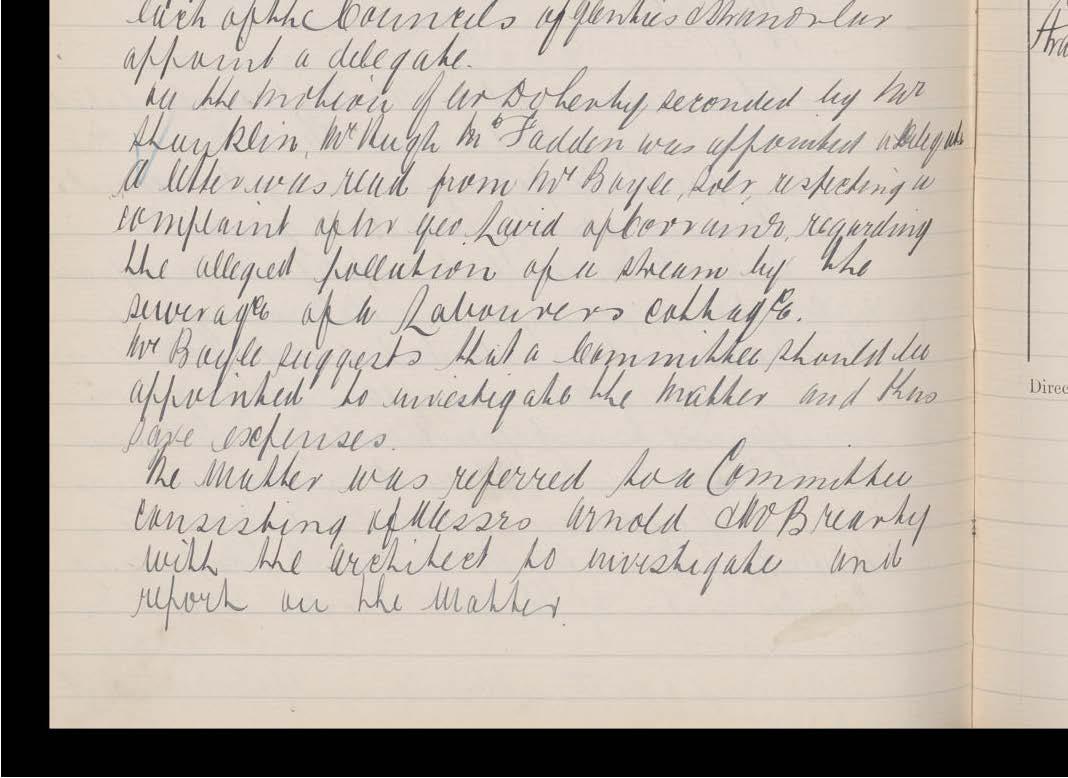 each of the Councils of Glenties & Stranorlar
appoint a delegate.
On the motion of Mr Doherty seconded by Mr
Shanklin, Mr Hugh McFadden was appointed a delegate
A letter was read from Mr Boyle, Solr, respecting a
complaint of Mr Geo. Laird of regarding
the alleged pollution of a stream by the
sewerage of a Labourers cottage.
Mr Boyle suggests that a Committee should be
appointed to investigate the matter and thus
save expenses.
The matter was referred to a Committee
consisting of Messrs Arnold & McBrearty
with the architect to investigate and
report on the matter.
Direc